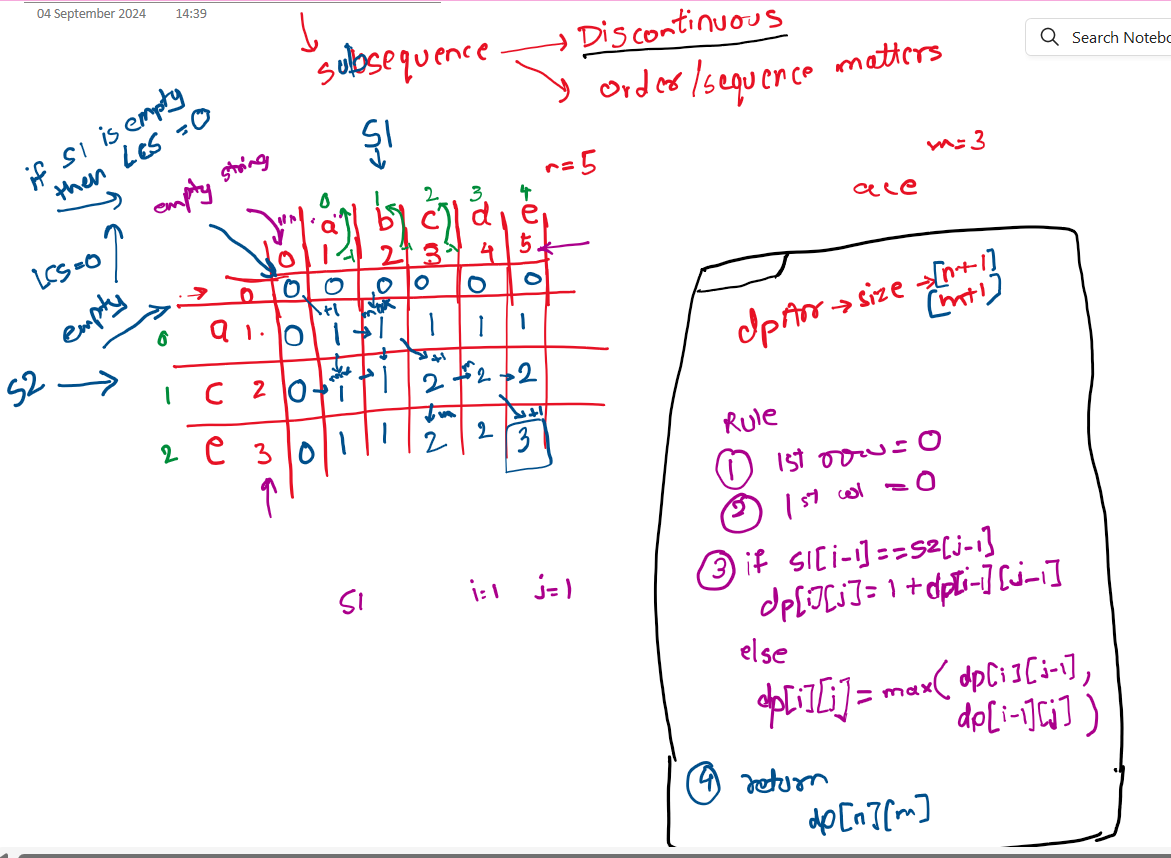 04 September 2024 14:39
Search Notebo
subsequence → Discontinuous
order/sequence matters
if S1 is empty
then LCS = 0
LCS=0
empty
empty string
S1
n=5
m=3
ace
0 1 2 3 4
"" a b c d e
0 1 2 3 4 5
0 0 0 0 0 0 0
+1 max
0 a 1 0 1 1 1 1 1
max +1
S2 → 1 c 2 0 1 1 2 m 2 2
m +1
2 e 3 0 1 1 2 2 3
S1 i=1 j=1
dpArr → size → [n+1]
[m+1]
Rule
① 1st row = 0
② 1st col = 0
③ if S1[i-1]==S2[j-1]
dp[i][j]=1+dp[i-1][j-1]
else
dp[i][j]=max(dp[i][j-1],
dp[i-1][j])
④ return
dp[n][m]